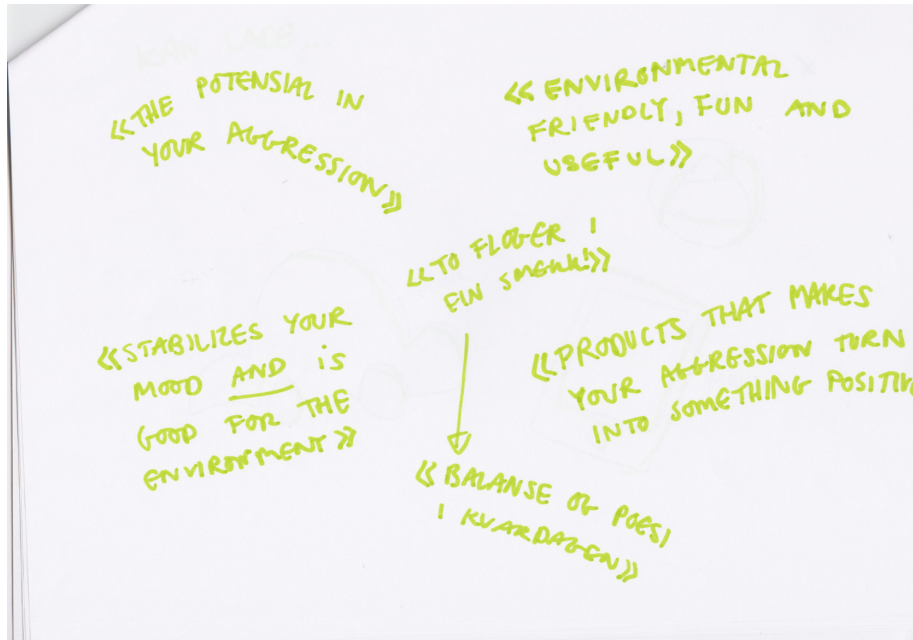 «THE POTENSIAL IN
YOUR AGGRESSION»
«ENVIRONMENTAL
FRIENDLY, FUN AND
USEFUL»
«TO FLOGER I
EIN SMEKK!»
«STABILIZES YOUR
MOOD AND IS
GOOD FOR THE
ENVIRONMENT»
«PRODUCTS THAT MAKES
YOUR AGGRESSION TURN
INTO SOMETHING POSITIVE
«BALANSE OG POESI
I KVARDAGEN»